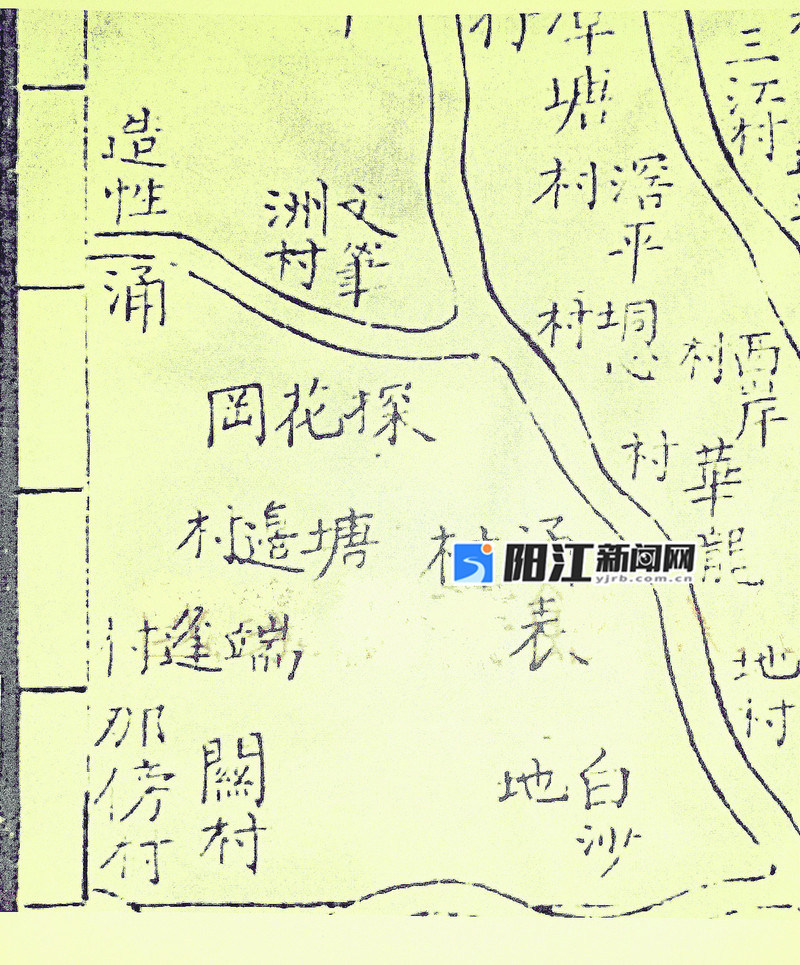 三江村
塘村
滘平
垌心村
西岸村
華龍
村
地村
文筆洲村
造性涌
探花岡
塘邊村
端逢村
那傍村
關村
白沙地
表
村
阳江新闻网
yjrb.com.cn